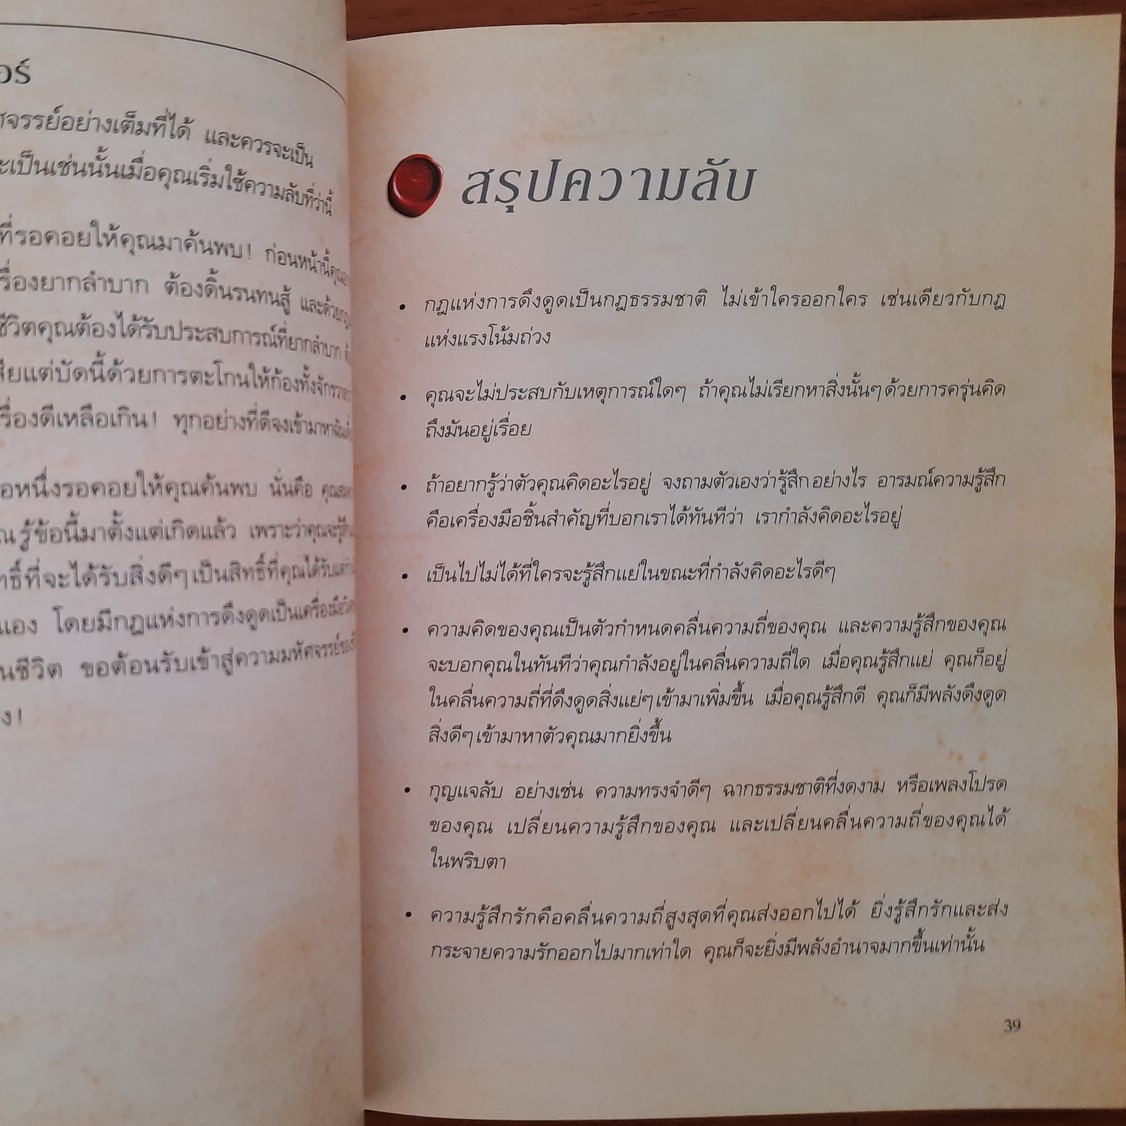 อร์
ศจรรย์อย่างเต็มที่ได้ และควรจะเป็น
ะเป็นเช่นนั้นเมื่อคุณเริ่มใช้ความลับที่ว่านี้
ที่รอคอยให้คุณมาค้นพบ! ก่อนหน้านี้
รื่องยากลำบาก ต้องดิ้นรนทนสู้ และด้วย
ชีวิตคุณต้องได้รับประสบการณ์ที่ยากลำบาก
สียแต่บัดนี้ด้วยการตะโกนให้ก้องทั้งจักรวาล
รื่องดีเหลือเกิน! ทุกอย่างที่ดีจงเข้ามาหาฉัน
อหนึ่งรอคอยให้คุณค้นพบ นั่นคือ
ณรู้ข้อนี้มาตั้งแต่เกิดแล้ว เพราะว่าคุณจะรู้สึก
ทธิ์ที่จะได้รับสิ่งดีๆ เป็นสิทธิ์ที่คุณได้รับ
เอง โดยมีกฎแห่งการดึงดูดเป็นเครื่องมือ
นชีวิต ขอต้อนรับเข้าสู่ความมหัศจรรย์ของ
ง!
สรุปความลับ
• กฎแห่งการดึงดูดเป็นกฎธรรมชาติ ไม่เข้าใครออกใคร เช่นเดียวกับกฎ
แห่งแรงโน้มถ่วง
• คุณจะไม่ประสบกับเหตุการณ์ใดๆ ถ้าคุณไม่เรียกหาสิ่งนั้นๆ ด้วยการครุ่นคิด
ถึงมันอยู่เรื่อย
• ถ้าอยากรู้ว่าตัวคุณคิดอะไรอยู่ จงถามตัวเองว่ารู้สึกอย่างไร อารมณ์ความรู้สึก
คือเครื่องมือชิ้นสำคัญที่บอกเราได้ทันทีว่า เรากำลังคิดอะไรอยู่
• เป็นไปไม่ได้ที่ใครจะรู้สึกแย่ในขณะที่กำลังคิดอะไรดีๆ
• ความคิดของคุณเป็นตัวกำหนดคลื่นความถี่ของคุณ และความรู้สึกของคุณ
จะบอกคุณในทันทีว่าคุณกำลังอยู่ในคลื่นความถี่ใด เมื่อคุณรู้สึกแย่ คุณก็อยู่
ในคลื่นความถี่ที่ดึงดูดสิ่งแย่ๆ เข้ามาเพิ่มขึ้น เมื่อคุณรู้สึกดี คุณก็มีพลังดึงดูด
สิ่งดีๆ เข้ามาหาตัวคุณมากยิ่งขึ้น
• กุญแจลับ อย่างเช่น ความทรงจำดีๆ ฉากธรรมชาติที่งดงาม หรือเพลงโปรด
ของคุณ เปลี่ยนความรู้สึกของคุณ และเปลี่ยนคลื่นความถี่ของคุณได้
ในพริบตา
• ความรู้สึกรักคือคลื่นความถี่สูงสุดที่คุณส่งออกไปได้ ยิ่งรู้สึกรักและส่ง
กระจายความรักออกไปมากเท่าใด คุณก็จะยิ่งมีพลังอำนาจมากขึ้นเท่านั้น
39